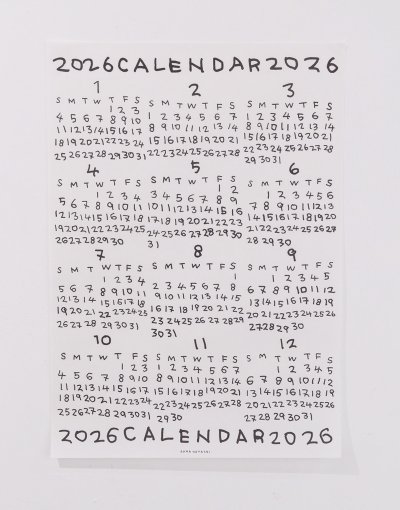 2026CALENDAR2026
1 2 3
S M T W T F S S M T W T F S S M T W T F S
1 2 3 1 2 3 4 5 6 7 1 2 3 4 5 6 7
4 5 6 7 8 9 10 8 9 10 11 12 13 14 8 9 10 11 12 13 14
11 12 13 14 15 16 17 15 16 17 18 19 20 21 15 16 17 18 19 20 21
18 19 20 21 22 23 24 22 23 24 25 26 27 28 22 23 24 25 26 27 28
25 26 27 28 29 30 31 29 30 31
4 5 6
S M T W T F S S M T W T F S S M T W T F S
1 2 3 4 1 2 1 2 3 4 5 6
5 6 7 8 9 10 11 3 4 5 6 7 8 9 7 8 9 10 11 12 13
12 13 14 15 16 17 18 10 11 12 13 14 15 16 14 15 16 17 18 19 20
19 20 21 22 23 24 25 17 18 19 20 21 22 23 21 22 23 24 25 26 27
26 27 28 29 30 24 25 26 27 28 29 30 28 29 30
31
7 8 9
S M T W T F S S M T W T F S S M T W T F S
1 2 3 4 1 1 2 3 4 5
5 6 7 8 9 10 11 2 3 4 5 6 7 8 6 7 8 9 10 11 12
12 13 14 15 16 17 18 9 10 11 12 13 14 15 13 14 15 16 17 18 19
19 20 21 22 23 24 25 16 17 18 19 20 21 22 20 21 22 23 24 25 26
26 27 28 29 30 31 23 24 25 26 27 28 29 27 28 29 30
30 31
10 11 12
S M T W T F S S M T W T F S S M T W T F S
1 2 3 1 2 3 4 5 6 7 1 2 3 4 5
4 5 6 7 8 9 10 8 9 10 11 12 13 14 6 7 8 9 10 11 12
11 12 13 14 15 16 17 15 16 17 18 19 20 21 13 14 15 16 17 18 19
18 19 20 21 22 23 24 22 23 24 25 26 27 28 20 21 22 23 24 25 26
25 26 27 28 29 30 31 29 30 27 28 29 30 31
2026CALENDAR2026